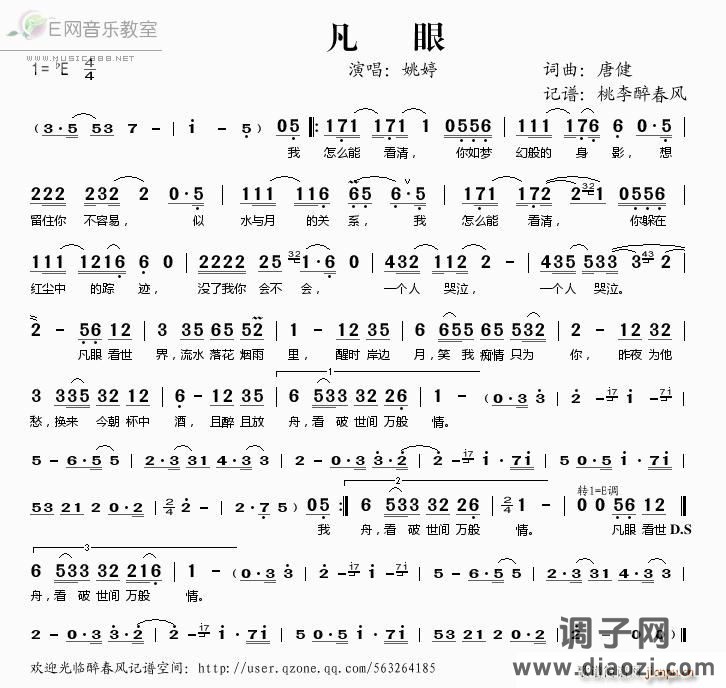 E网音乐教室
WWW.MUSIC888.NET
凡 眼
1=♭E 4/4
演唱：姚婷
词曲：唐健
记谱：桃李醉春风
(3·5 53 7 - | i - 5) 05 ‖: 171 171 1 0556 | 111 176 6 0·5 |
我 怎么能 看清， 你如梦 幻般的 身 影， 想
222 232 2 0·5 | 111 116 65 6·5 | 171 172 2-1 0556 |
留住你 不容易， 似 水与月 的关 系， 我 怎么能 看清， 你躲在
111 1216 6 0 | 2222 25 1 0 | 432 112 2 - | 435 533 3 2 |
红尘中 的踪 迹， 没了我你 会不 会， 一个人 哭泣， 一个人 哭泣。
2 - 56 12 | 3 35 65 52 | 1 - 12 35 | 6 655 65 532 | 2 - 12 32 |
凡眼看世 界，流水 落花 烟雨 里， 醒时 岸边 月，笑 我 痴情 只为 你， 昨夜 为他
3 335 32 12 | 6 - 12 35 | 6 533 32 26 | 1 - (0·3 3 | 2 - i |
愁，换来 今朝 杯中 酒， 且醉 且放 舟，看 破 世间 万般 情。
5 - 6·5 5 | 2·3 31 4·3 3 | 2 0·3 3·2 | 2 - i · 7i | 5 0·5 i · 7i |
53 21 2 0·2 | 2/4 2 - | 2·7 5) 05 :‖ 6 533 32 26 | 2/4 1 - | 0 0 56 12 ‖
转1=E调
我 舟，看 破 世间 万般 情。 凡眼 看世 D.S
6 533 32 216 | 1 - (0·3 3 | 2 - i · 7i | 5 - 6·5 5 | 2·3 31 4·3 3 |
舟，看 破 世间 万般 情。
2 0·3 3·2 | 2 - i · 7i | 5 0·5 i · 7i | 53 21 2 0·3 | 2 - i - )‖
欢迎光临醉春风记谱空间：http://user.qzone.qq.com/563264185
调子网
www.diaozi.com